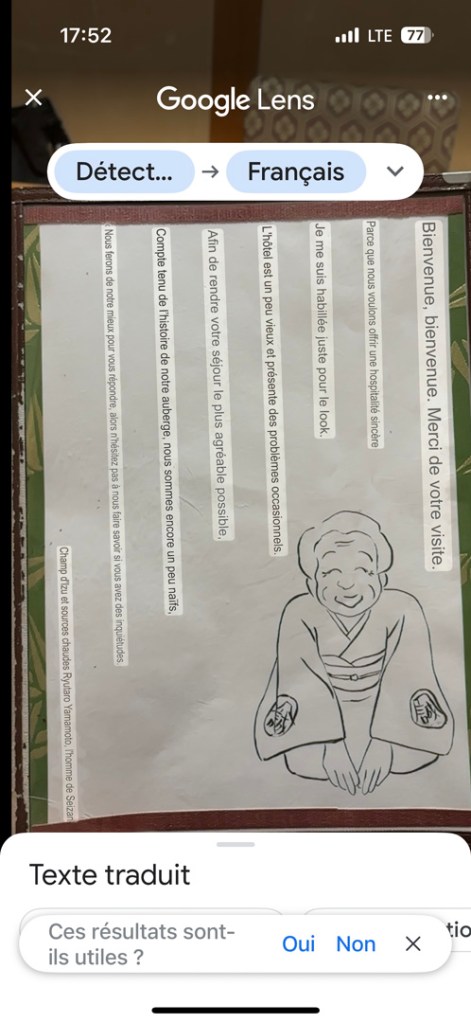 17:52
LTE 77
Google Lens
Détect... → Français
Bienvenue, bienvenue. Merci de votre visite.
Parce que nous voulons offrir une hospitalité sincère
Je me suis habillée juste pour le look.
L'hôtel est un peu vieux et présente des problèmes occasionnels.
Afin de rendre votre séjour le plus agréable possible,
Compte tenu de l'histoire de notre auberge, nous sommes encore un peu naïfs,
Nous ferons de notre mieux pour vous répondre, alors n'hésitez pas à nous faire savoir si vous avez des inquiétudes.
Champ d'Izu et sources chaudes Ryutaro Yamamoto, l'homme de Seizan
Texte traduit
Ces résultats sont-
ils utiles ?
Oui Non